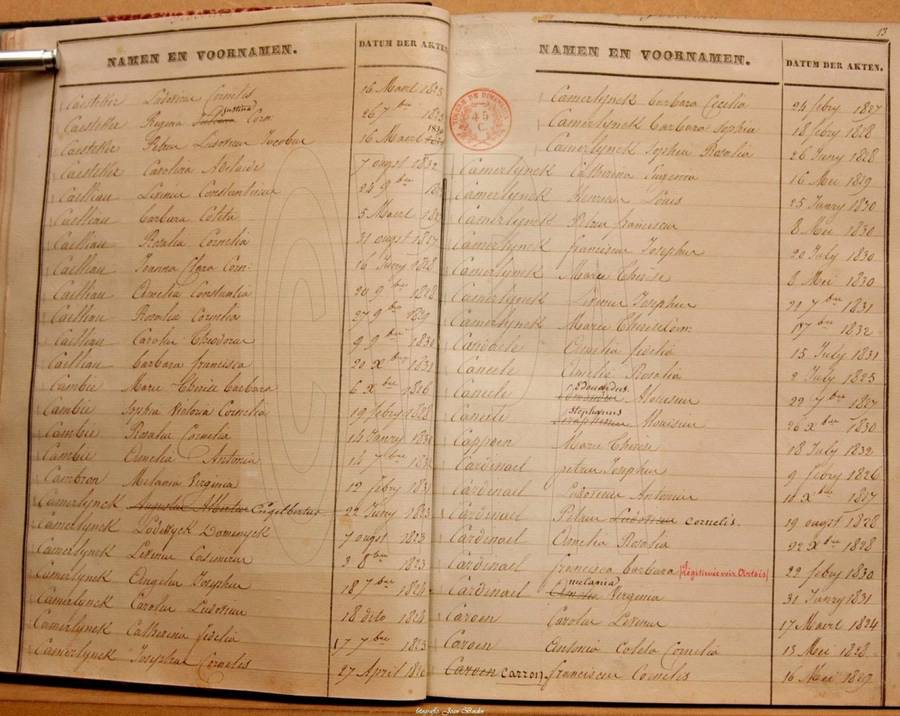 NAMEN EN VOORNAMEN. DATUM DER AKTEN.
Caesteker Ludovicus Cornelis 16 Maart 1823
Caesteker Regina Justina Corn. 26 7bre
Caesteker Petrus Ludovicus Jacobus 16 Maart 1830
Caesteker Carolina Adelaide 7 ougst 1832
Cailliau Livinus Constantinus 24 9bre
Cailliau Barbara Coleta 5 Maart
Cailliau Rosalia Cornelia 31 ougst 1827
Cailliau Joanna Clara Corn. 16 Juny 1828
Cailliau Amelia Constantia 20 9bre 1828
Cailliau Rosalia Cornelia 27 9bre 1829
Cailliau Carolus Theodorus 9 9bre 1831
Cailliau Barbara francisca 20 Xbre 1831
Cambie Marie Therese Barbara 6 Xbre 1826
Cambie Sophia Victoria Cornelia 19 febry 1828
Cambie Rosalia Cornelia 14 Janry 1830
Cambie Amelia Antonia 14 7bre
Cambron Melania Virginia 12 febry 1831
Camerlynck Augusta Albertus Engelbertus 22 Juny 1823
Camerlynck Lodewyck Domenyck 7 ougst 1823
Camerlynck Livinus Casimirus 2 8bre 1823
Camerlynck Angelus Josephus 18 7bre
Camerlynck Carolus Ludovicus 18 dito
Camerlynck Catharina fidelia 17 7bre 1825
Camerlynck Josephus Cornelis 27 April
13
NAMEN EN VOORNAMEN. DATUM DER AKTEN.
45 C.
Camerlynck Barbara Cecilia 24 febry 1827
Camerlynck Barbara Sophia 18 febry 1828
Camerlynck Sophia Rosalia 26 Juny 1828
Camerlynck Catharina Eugenia 16 Mei 1829
Camerlynck Henricus Louis 25 Janry 1830
Camerlynck Petrus franciscus 8 Mei 1830
Camerlynck franciscus Josephus 20 July 1830
Camerlynck Marie Therese 8 Mei 1830
Camerlynck Livinus Josephus 22 7bre 1831
Camerlynck Marie Theresia 17 bre 1832
Candaele Amelia fidelia 15 July 1831
Caneele Amelie Rosalia 2 July 1825
Caneele Edouardus Aloisius 29 7bre 1827
Caneele Stephanus Aloisius 26 Xbre 1830
Cappoen Marie Therese 18 July 1832
Cardinael petrus Josephus 9 febry 1826
Cardinael Ludovicus Antonius 10 Xbre 1827
Cardinael Petrus Ludovicus cornelis. 19 ougst 1828
Cardinael Amelia Rosalia 22 Xbre 1828
Cardinael francisca Barbara 22 febry 1830
Cardinael Amelia melania Virginia 31 Janry 1831
Caroen Carolus Livinus 17 Maart 1824
Caroen Antonia Coleta Cornelia 13 Mei 1828
Caroen Carron franciscus Cornelis 16 Mei 1829
fotografie Joan Buslen